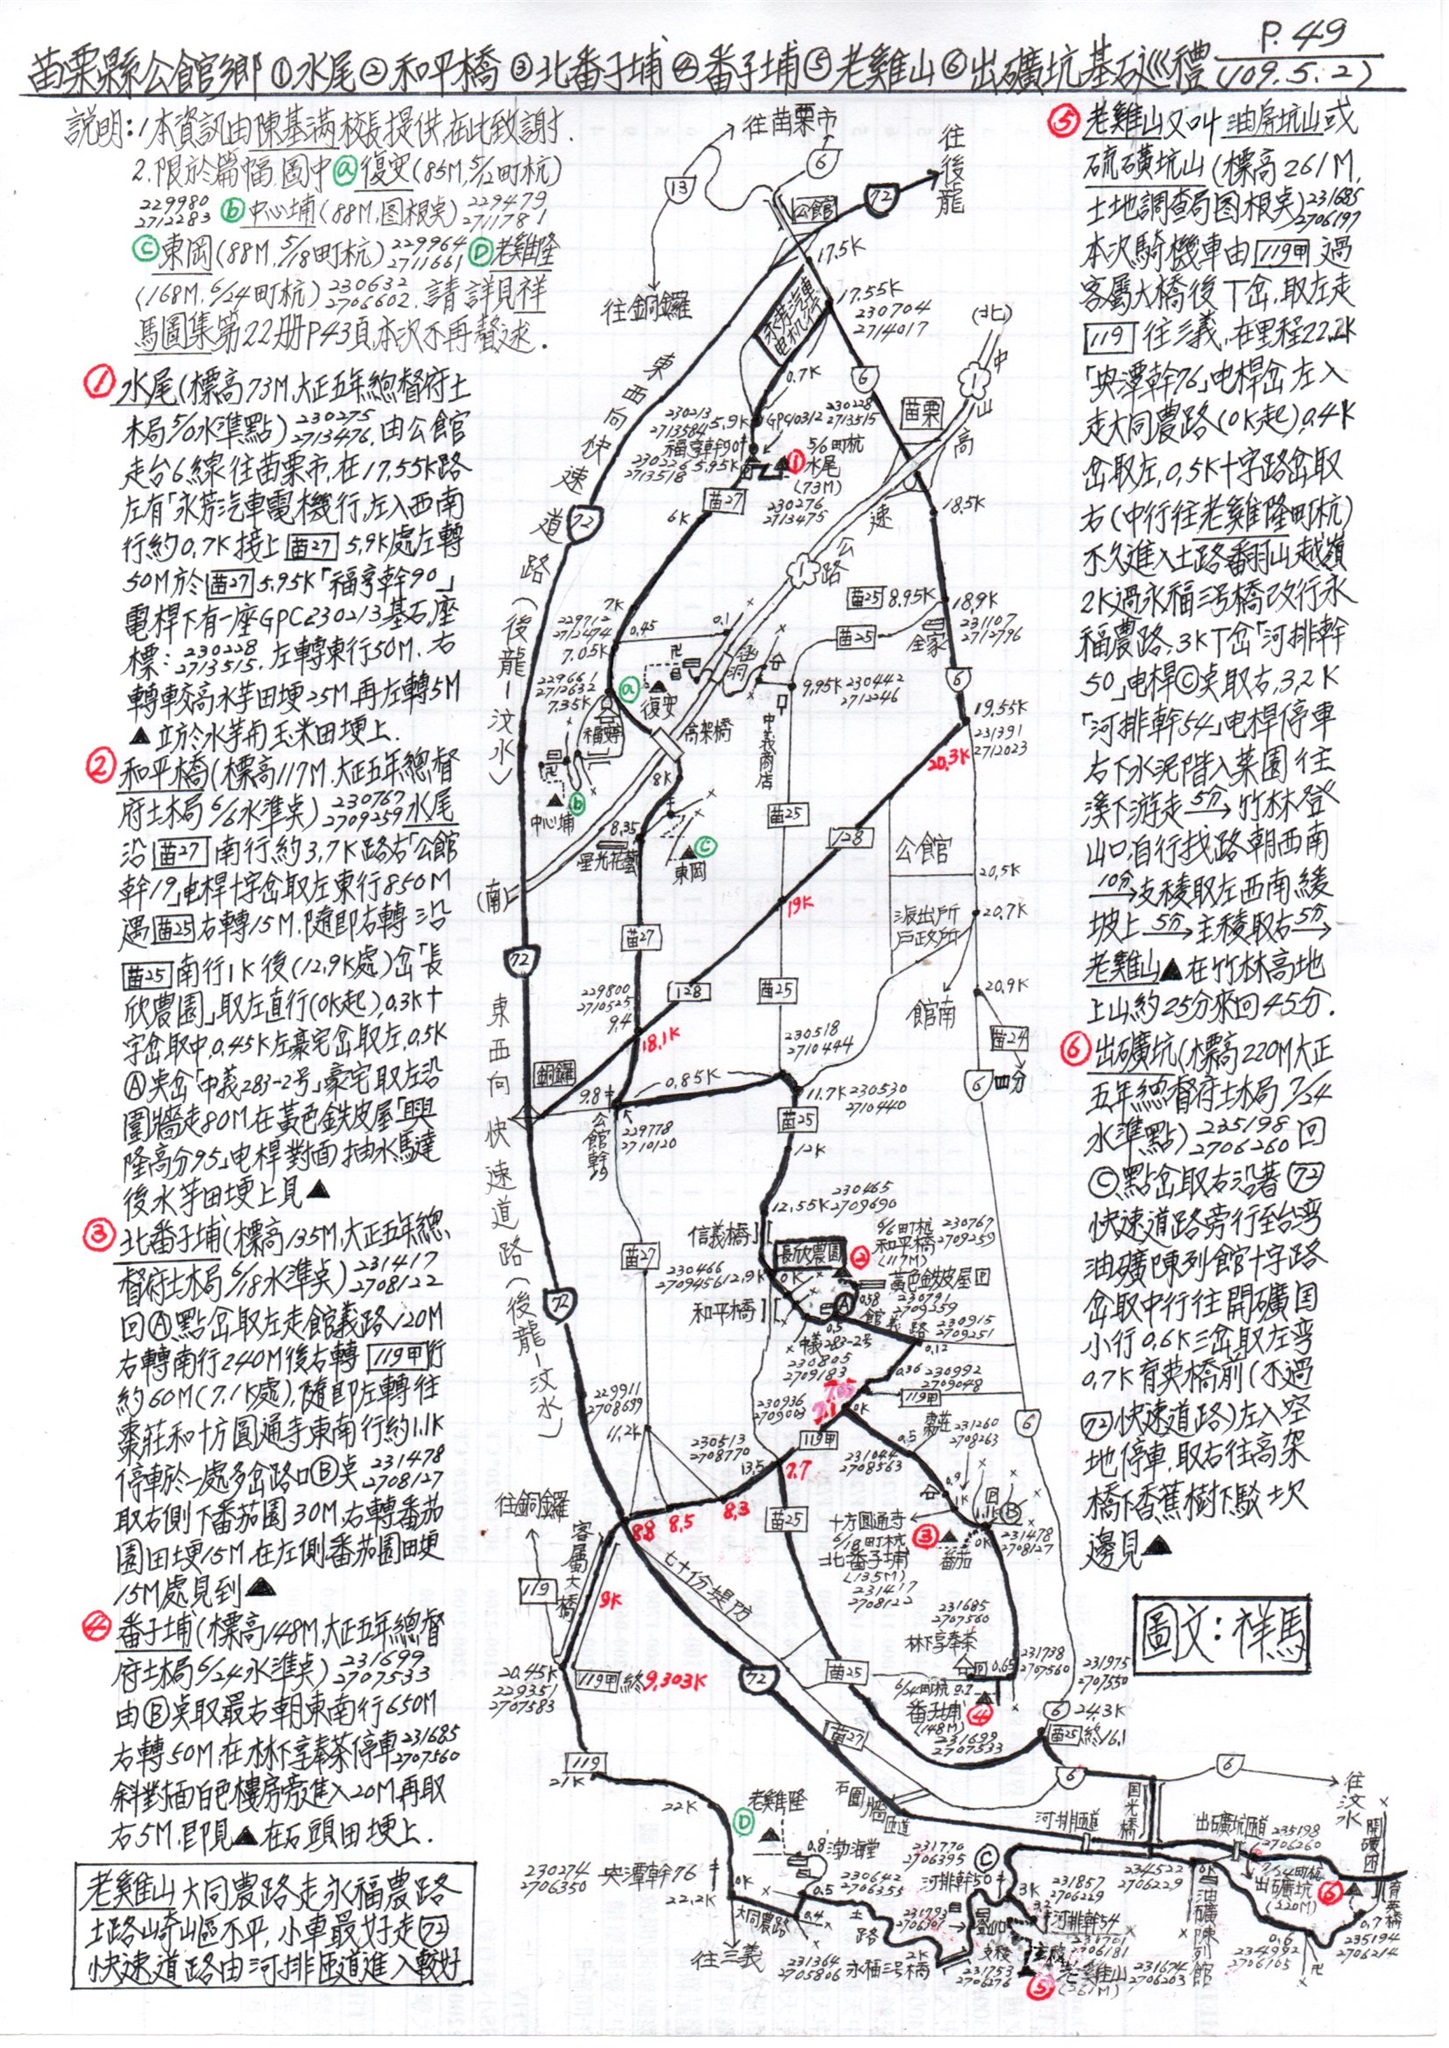 苗栗縣公館鄉①水尾②和平橋③北番子埔④番子埔⑤老雞山⑥出磺坑基石巡禮
P.49
(109.5.2)
説明:1本資訊由陳基滿校長提供,在此致謝.
2.限於篇幅.圖中ⓐ復安(85M,5/12町杭)
229980
2712283
ⓑ中心埔(88M,图根奌)
229479
2711781
ⓒ東岡(88M,5/18町杭)
229964
2711661
Ⓓ老雞隆
(168M,6/24町杭)
230632
2706602
.請詳見祥
馬圖集第22册P43頁,本次不再聱述.
①水尾(標高73M,大正五年總督府土
木局5/0水準點)
230275
2713476
.由公館
走台6線往苗栗市,在17,55K路
左有「永芳汽車電機行」,左入西南
行約0,7K接上苗27 5,9K處左轉
50M於苗27 5,95K「福亨幹90」
電桿下有一座GPC230213基石,座
標:
230228
2713515
.左轉東行50M.右
轉較高水芋田埂25M,再左轉5M
▲立於水芋甪玉米田埂上.
②和平橋(標高117M,大正五年總督
府土木局6/6水準奌)
230767
2709259
水尾
沿苗27南行約3,7K路右「公館
幹19」电桿十字岔取左東行850M
遇苗25右轉15M,隨即右轉沿
苗25南行1K後(12,9K處)岔「長
欣農園」取左直行(0K起),0,3K十
字岔取中,0,45K左豪宅岔取左,0,5K
Ⓐ奌岔「中義283-2号」豪宅取左沿
圍牆走80M,在黃色鉄皮屋「興
隆高分95」电桿對面抽水馬達
後水芋田埂上見▲
③北番子埔(標高135M,大正五年總
督府土木局6/18水準奌)
231417
2708122
回Ⓐ點岔取左走館義路120M
右轉南行240M後右轉119甲行
約60M(7,1K處),隨即左轉往
棗莊和十方圓通寺東南行約1.1K
停車於一處多岔路口Ⓑ奌
231478
2708127
取右側下番茄園30M,右轉番茄
園田埂15M,在左側番茄園田埂
15M處見到▲
④番子埔(標高148M,大正五年總督
府土木局6/24水準奌)
231699
2707533
由Ⓑ奌取最右朝東南行650M
右轉50M,在林下享奉茶停車
231685
2707560
斜對面白色樓房旁進入20M,再取
右5M,即見▲在石頭田埂上.
老雞山大同農路走永福農路
土路崎山區不平,小車最好走72
快速道路由河排匝道進入較好
⑤老雞山又叫油房坑山或
硫磺坑山(標高261M,
土地調查局图根奌)
231685
2706197
本次騎機車由119甲過
客屬大橋後丁岔,取左走
119往三義,在里程22,2K
「央潭幹76」电桿岔左入
走大同農路(0K起),0,4K
岔取左,0,5K十字路岔取
右(中行往老雞隆町杭)
不久進入土路翻山越嶺
2K過永福三号橋改行永
福農路,3K丁岔「河排幹
50」电桿ⓒ奌取右,3,2K
「河排幹54」电桿停車
右下水泥階入菜園往
溪下游走5分→竹林登
山口,自行找路朝西南
10分→支稜取左西南緩
坡上5分→主稜取右5分→
老雞山▲在竹林高地
上山約25分來回45分.
⑥出磺坑(標高220M大正
五年總督府土木局7/24
水準點)
235198
2706260
回
ⓒ點岔取右沿著72
快速道路旁行至台湾
油礦陳列館十字路
岔取中行往開礦囯
小行0,6K三岔取左弯
0,7K育英橋前(不過
72快速道路)左入空
地停車,取右往高架
橋下香蕉樹下駁坎
邊見▲
圖文:祥馬
往苗栗市
往後龍
13
6
72
公館
17.5K
往銅鑼
永芳汽車电机行
17.55K
230704
2714017
(北)
中山高速公路
東西向快速道路(後龍-汶水)
0.7K
苗栗
230213
2713584
5.9K
GPC10312
230228
2713515
福亨幹90
230226
2713518
5.95K
5/6町杭
①水尾
(73M)
230276
2713475
苗27
6K
18.5K
7K
229712
2712474
7.05K
0.45
0.1
涵洞
苗25
8.95K
18.9K
231107
2712796
全家
苗25
229661
2712632
7.35K
ⓐ
復安
高架橋
9.95K
230442
2712246
中義商店
19.55K
231391
2712023
20.3K
8K
中心埔
ⓑ
8.35
星光花藝
ⓒ
東岡
苗25
128
公館
20,5K
(南)
19K
派出所
戶政所
20,7K
苗27
72
128
苗25
20,9K
館南
229800
2710525
9.4
18.1K
230518
2710444
苗24
四份
銅鑼
9.8
0.85K
11.7K
230530
2710440
229778
2710120
公館幹19
苗25
12K
12.55K
230465
2709690
信義橋
長欣農園
6/6町杭
和平橋
(117M)
230767
2709259
②
230466
2709456
12.9K
0K
黃色鉄皮屋
230791
2709259
和平橋
館義路
230915
2709251
0.12
中義283-2号
230805
2709183
0.36
230992
2709048
119甲
230936
2709003
7.1
0K
229911
2708699
11.2K
230513
2708770
13.5
7.7
119甲
231044
2708563
0.5
棗莊
231260
2708263
0.9
1K
1.1K
Ⓑ
231478
2708127
十方圓通寺
③
6/18町杭
北番子埔
(135M)
231417
2708122
番茄
0K
往銅鑼
客屬大橋
8.8
8.5
8.3
苗25
119
9K
七十份堤防
231685
2707560
林下享奉茶
0.65
231738
2707560
231975
2707550
20.45K
229351
2707583
119甲
終9,303K
苗25
6/24町杭
番子埔
④
(148M)
231699
2707533
24.3K
苗25
終16.1
119
21K
苗27
石圍牆匝道
22K
老雞隆
Ⓓ
0.8
渤海堂
230274
2706350
央潭幹76
22.2K
0K
大同農路
0.4
0.5
230642
2706355
土路
往三義
231364
2705806
永福三号橋
2K
231770
2706395
河排幹50
ⓒ
3K
河排匝道
231857
2706229
3.2
河排幹54
231701
2706181
登山口
支稜
主稜
231753
2706276
老雞山
⑤
(261M)
231674
2706203
囯光橋
往汶水
出磺坑匝道
235198
2706260
7/24町杭
出磺坑
(220M)
⑥
開礦囯
育英橋
0.7
235194
2706214
234522
2706229
油礦陳列館
0K
0.6
234992
2706165